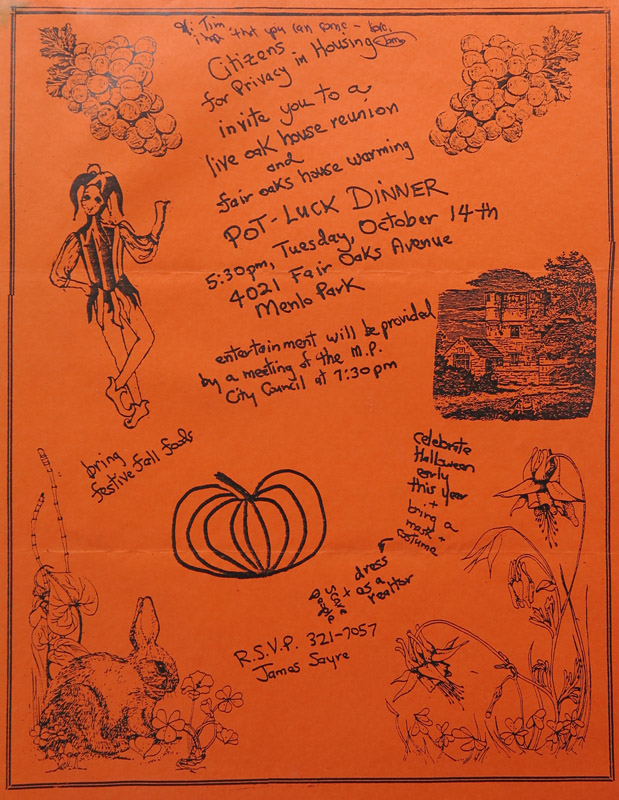 Hi Tim
i hope that you can come - love, James
Citizens
for Privacy in Housing
invite you to a
live oak house reunion
and
fair oaks house warming
POT-LUCK DINNER
5:30pm, Tuesday, October 14th
4021 Fair Oaks Avenue
Menlo Park
entertainment will be provided
by a meeting of the M.P.
City Council at 7:30pm
bring
festive fall foods
celebrate
Halloween
early
this year
+
bring a
mask +
costume
dress
as a
realtor
+
scare
people
R.S.V.P. 321-7057
James Sayre